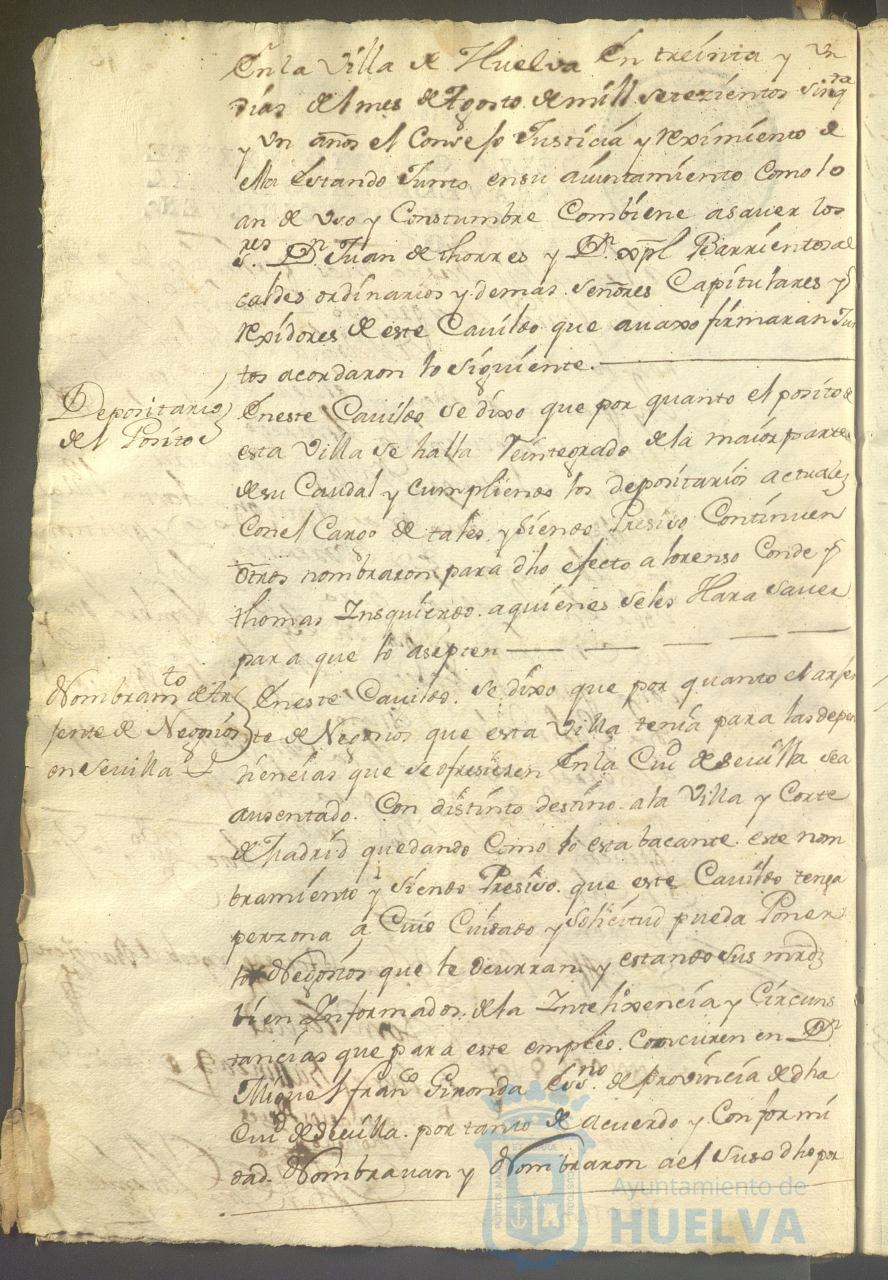 En la Villa de Huelva En treinta y un
dias del mes de Agosto de mill setezientos sinqta
y un años el Consejo Justicia y reximiento de
ella Estando Junto en su aiuntamiento como lo
an de uso y Constumbre Combiene a saver los
sres Dn Juan de thorres y Dn xpl Barrientos al
caldes ordinarios y demas señores Capitulares y
rexidores de este Cavildo que avaxo firmaran Jun
tos acordaron lo siguiente.
Depositarios
del Posito
En este Cavildo se dixo que por quanto el posito de
esta Villa se halla reintegrado de la maior parte
de su Caudal y cumpliendo los depositarios actuales
Con el Cargo de tales y siendo Presiso Continuen
otros nombraron para dho efecto a lorenso Conde y
thomas Insquierdo a quienes se les Hara saver
para que lo asepten
Nombramto de Ax
jente de Negosios
en Sevilla
En este Cavildo se dixo que por quanto el axjen
te de Negosios que esta Villa tenia para las depen
diencias que se ofresiesen En la Ciud de Sevilla sea
ausentado Con distinto destino a la Villa y Corte
de Madrid quedando Como lo esta bacante este nom
bramiento y siendo Presiso que este Cavildo tenga
perzona a Cuio Cuidado y solicitud pueda Poner
los Negosios que le ocurran y estando sus mrds
bien Informados de la Intelixencia y Circuns
tancias que para este empleo Concuren en Dn
Miguel franco Gironda Essno de provincia de dha
Ciud de Sevilla por tanto de acuerdo y Conformi
dad Nombravan y Nombraron a el suso dho por
Ayuntamiento de
HUELVA